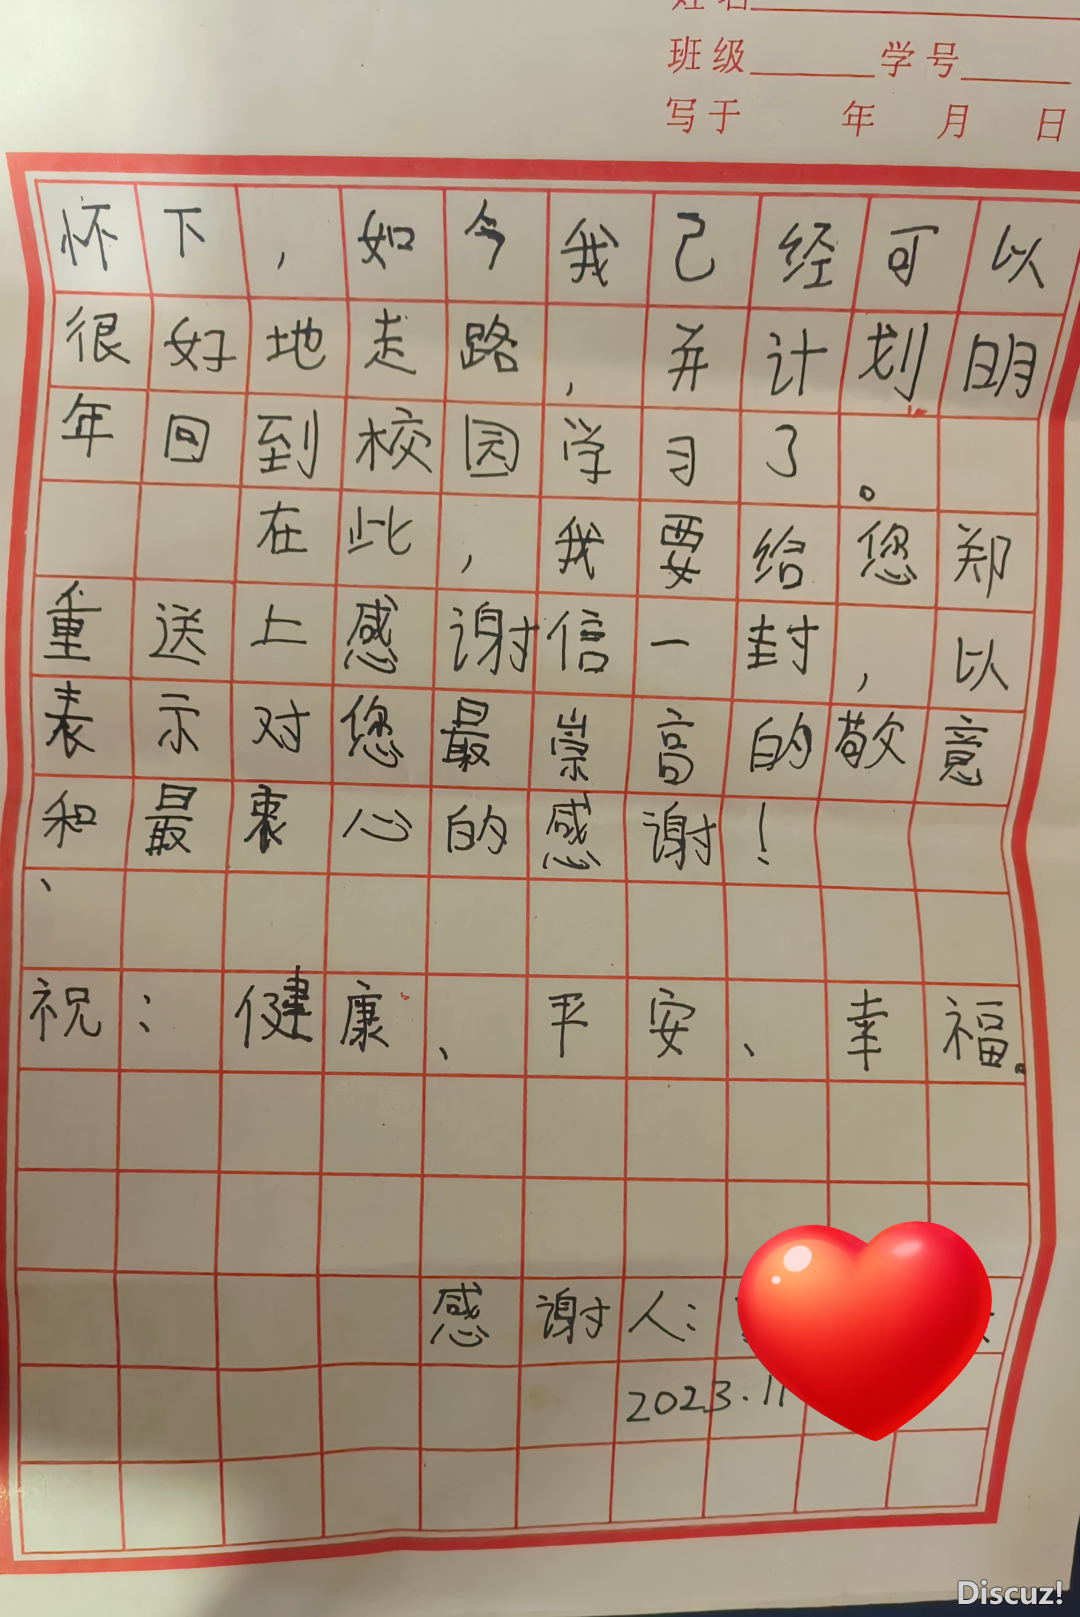 姓名
班级 学号
写于 年 月 日
怀下，如今我己经可以
很好地走路，并计划明
年回到校园学习了。
在此，我要给您郑
重送上感谢信一封，以
表示对您最崇高的敬意
和最衷心的感谢！
祝：健康、平安、幸福。
感谢人：
2023.11
Discuz!